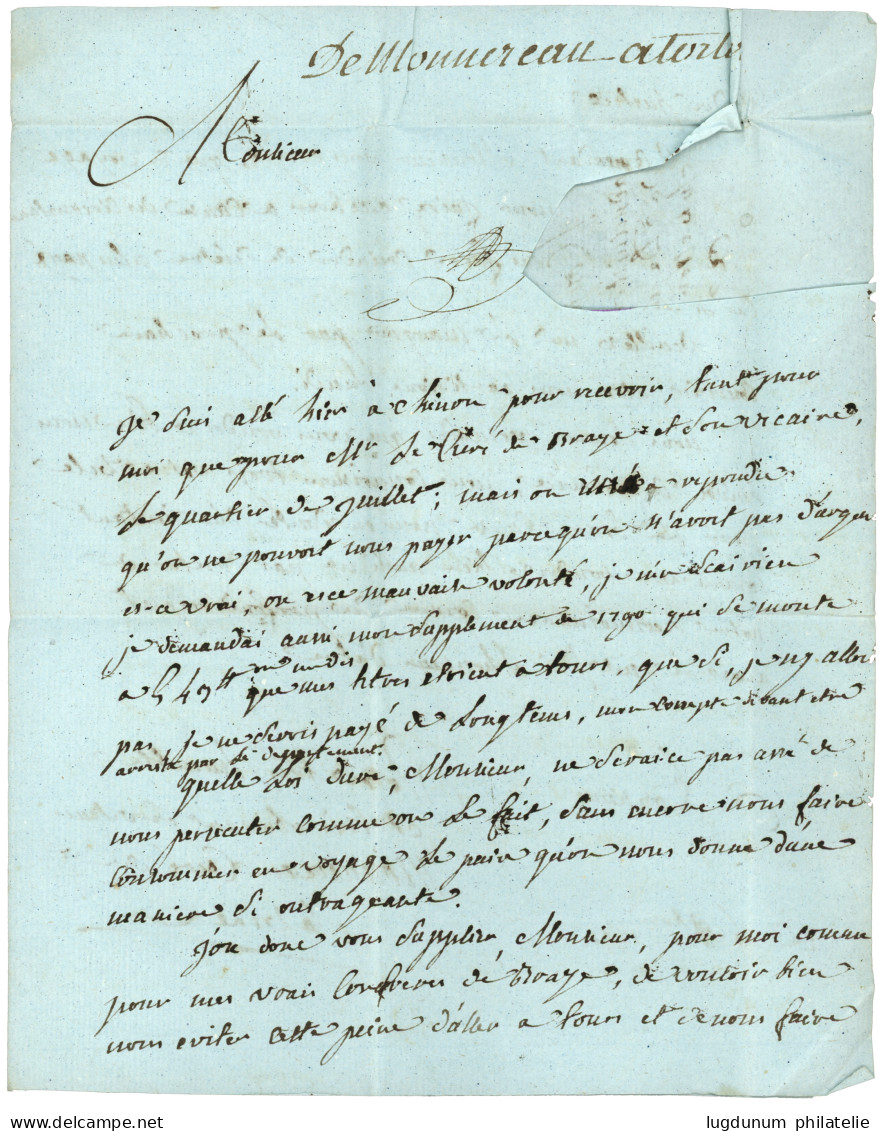 De Monnereau
Monsieur
Je suis allé hier à Chinon pour recevoir, tant pour
moi que pour Mr. le Curé de Braye et son vicaire,
le quartier de Juillet; mais on a repondu
qu'on ne pouvoit nous payer parcequ'on n'avoit pas d'argen
est-ce vrai, ou est ce mauvaise volonté, je n'en scai rien
je demandai aussi mon supplement de 1790 qui se monte
a on me dis que mes titres etoient a tours, que si, je n'y allois
pas je ne serois payé de longtems, mon compte devant etre
arresté par le departement.
quelle loi dure, Monsieur, ne seraice pas assé de
nous persecuter comme on le fait, sans encore nous faire
consommer en voyage le pain qu'on nous donne d'une
maniere si outrageante.
J'ose donc vous supplier, Monsieur, pour moi comme
pour mes vrais Confreres de Braye, de vouloir bien
nous eviter cette peine d'aller a tours et de nous faire
lugdunum philatelie